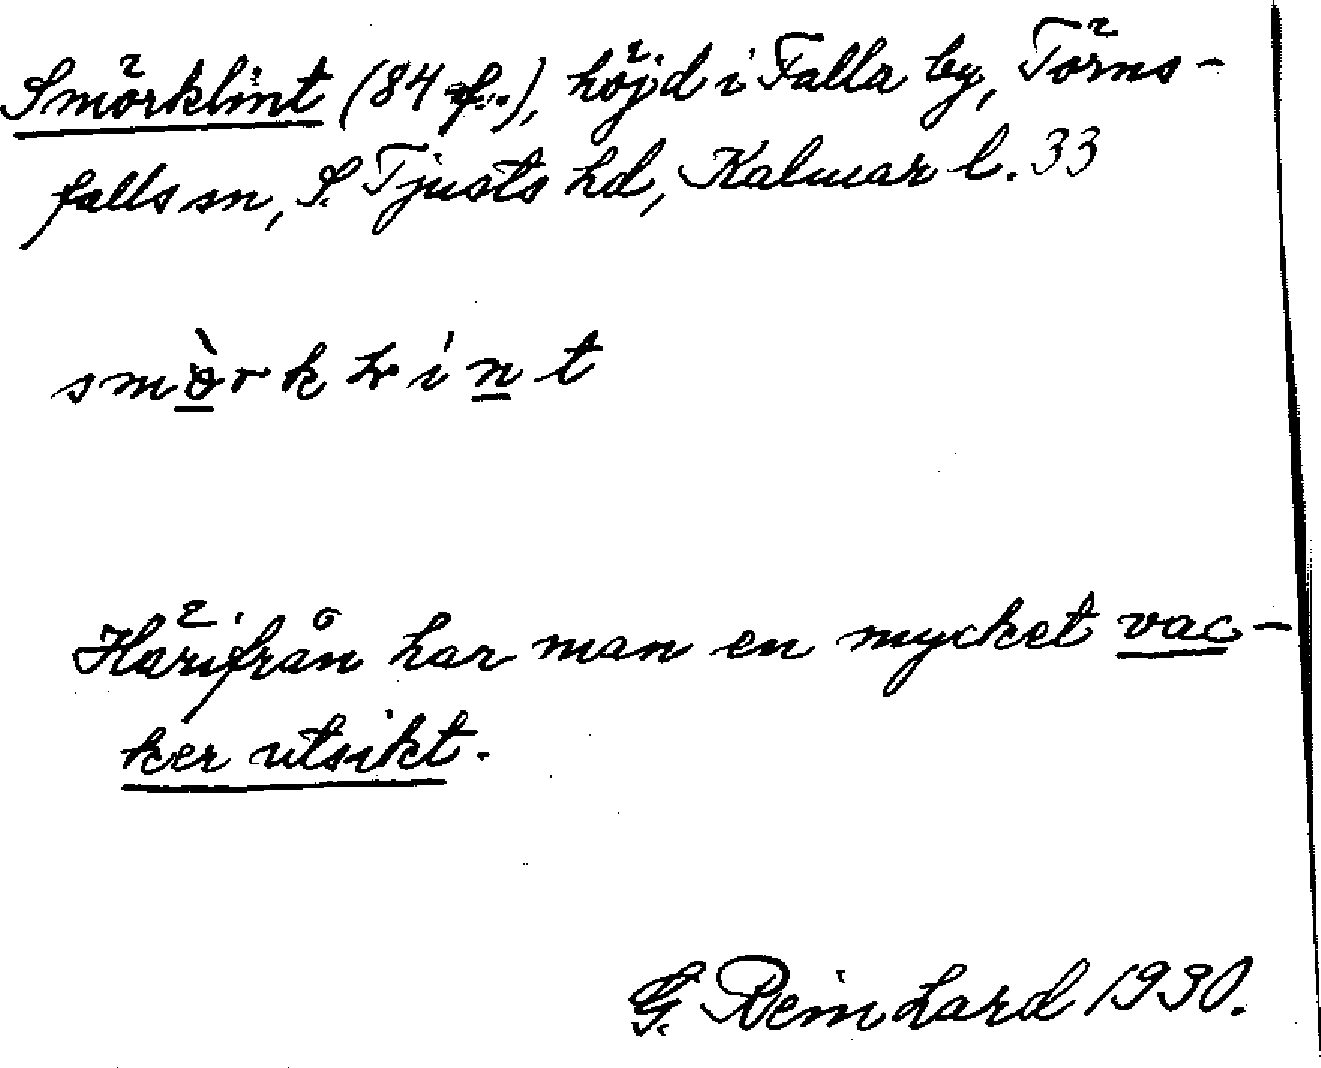 Smörklint (84 f.), höjd i Falla by, Törns-
falls sn, S. Tjusts hd, Kalmar l. 33
smòrklint
Härifrån har man en mycket vac-
ker utsikt.
G. Reinhard 1930.